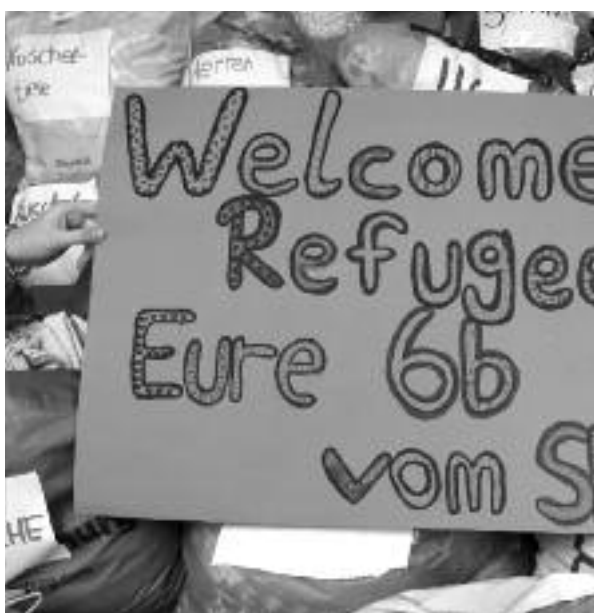 Kuschel-
tiere
Herren
Welcome
Refugee
Eure 6b
vom S
HE